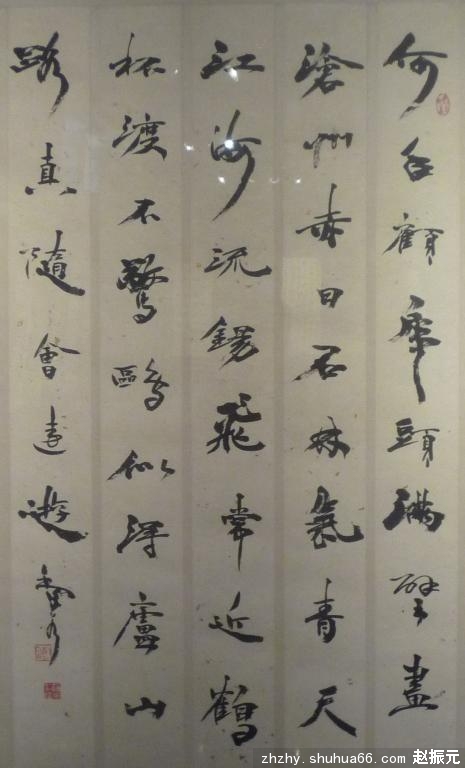 何年顧虎頭滿壁畫
滄州赤日石林氣青天
江海流錫飛常近鶴
杯渡不驚鷗似得廬山
路真隨會遠遊
zhzhy.shuhua66.com 赵振元